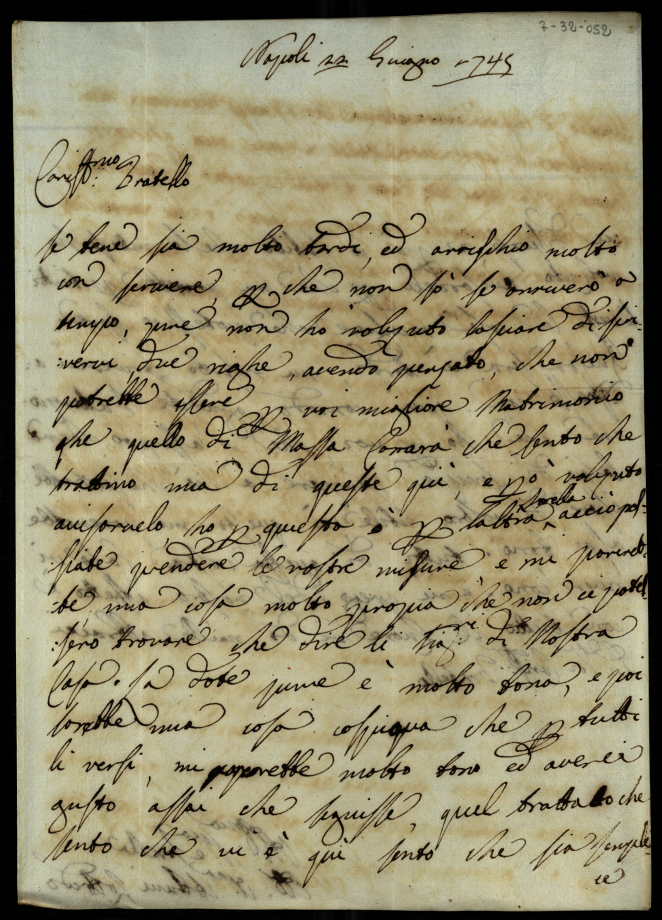 7-32-052
Napoli 22 Giugno 1745
Cariss:mo Fratello
se bene sia molto tardi, ed arrischio molto
con scrivere, p che non sò se arriverò a
tempo, pure non ho voluto lasciare di scri:
:vervi due righe, avendo pensato, che non
potrebbe essere p voi migliore Matrimonio
che quello di Massa Carara che sento che
trattino una di queste quì, e p ò voluto
avisarvelo, ho p questa ò p l'altra sorella acciò pos:
:siate prendere le vostre misure e mi parireb:
:be, una cosa molto propia che non ci potes:
:sero trovare che dire li Zia:ni di Nostra
Casa. La dote pure è molto bona, e poi
sarebbe una cosa cospiqua che p tutti
li versi, mi parerebbe molto bono ed averei
gusto assai che seguisse, quel trattato che
sento che vi è quì sento che sia semplic
ce